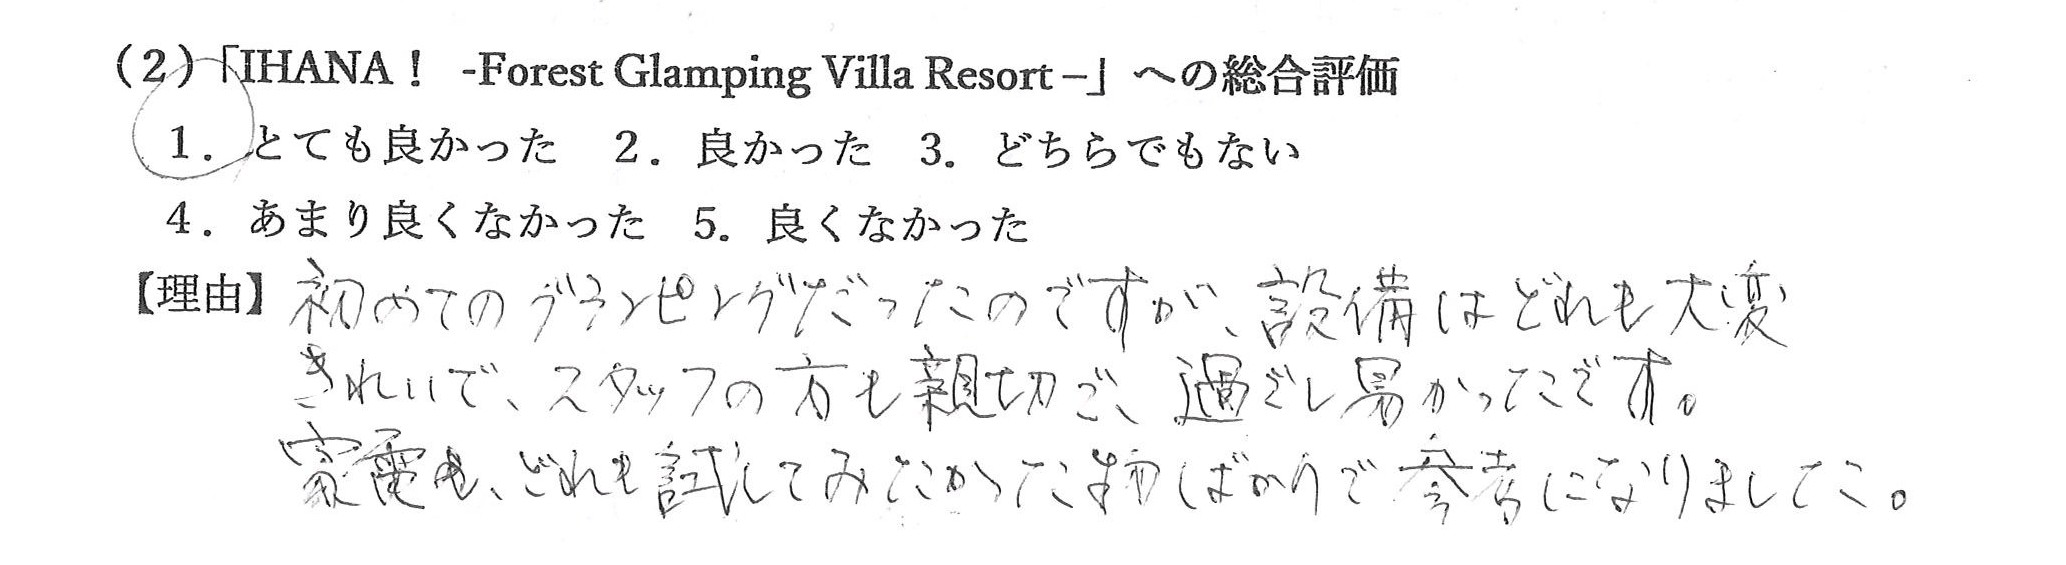 （2）「IHANA！ -Forest Glamping Villa Resort –」への総合評価
1．とても良かった　2．良かった　3．どちらでもない
4．あまり良くなかった　5．良くなかった
【理由】初めてのグランピングだったのですが、設備はどれも大変
きれいで、スタッフの方も親切で、過ごし易かったです。
家電も、どれも試してみたかった物ばかりで参考になりました。